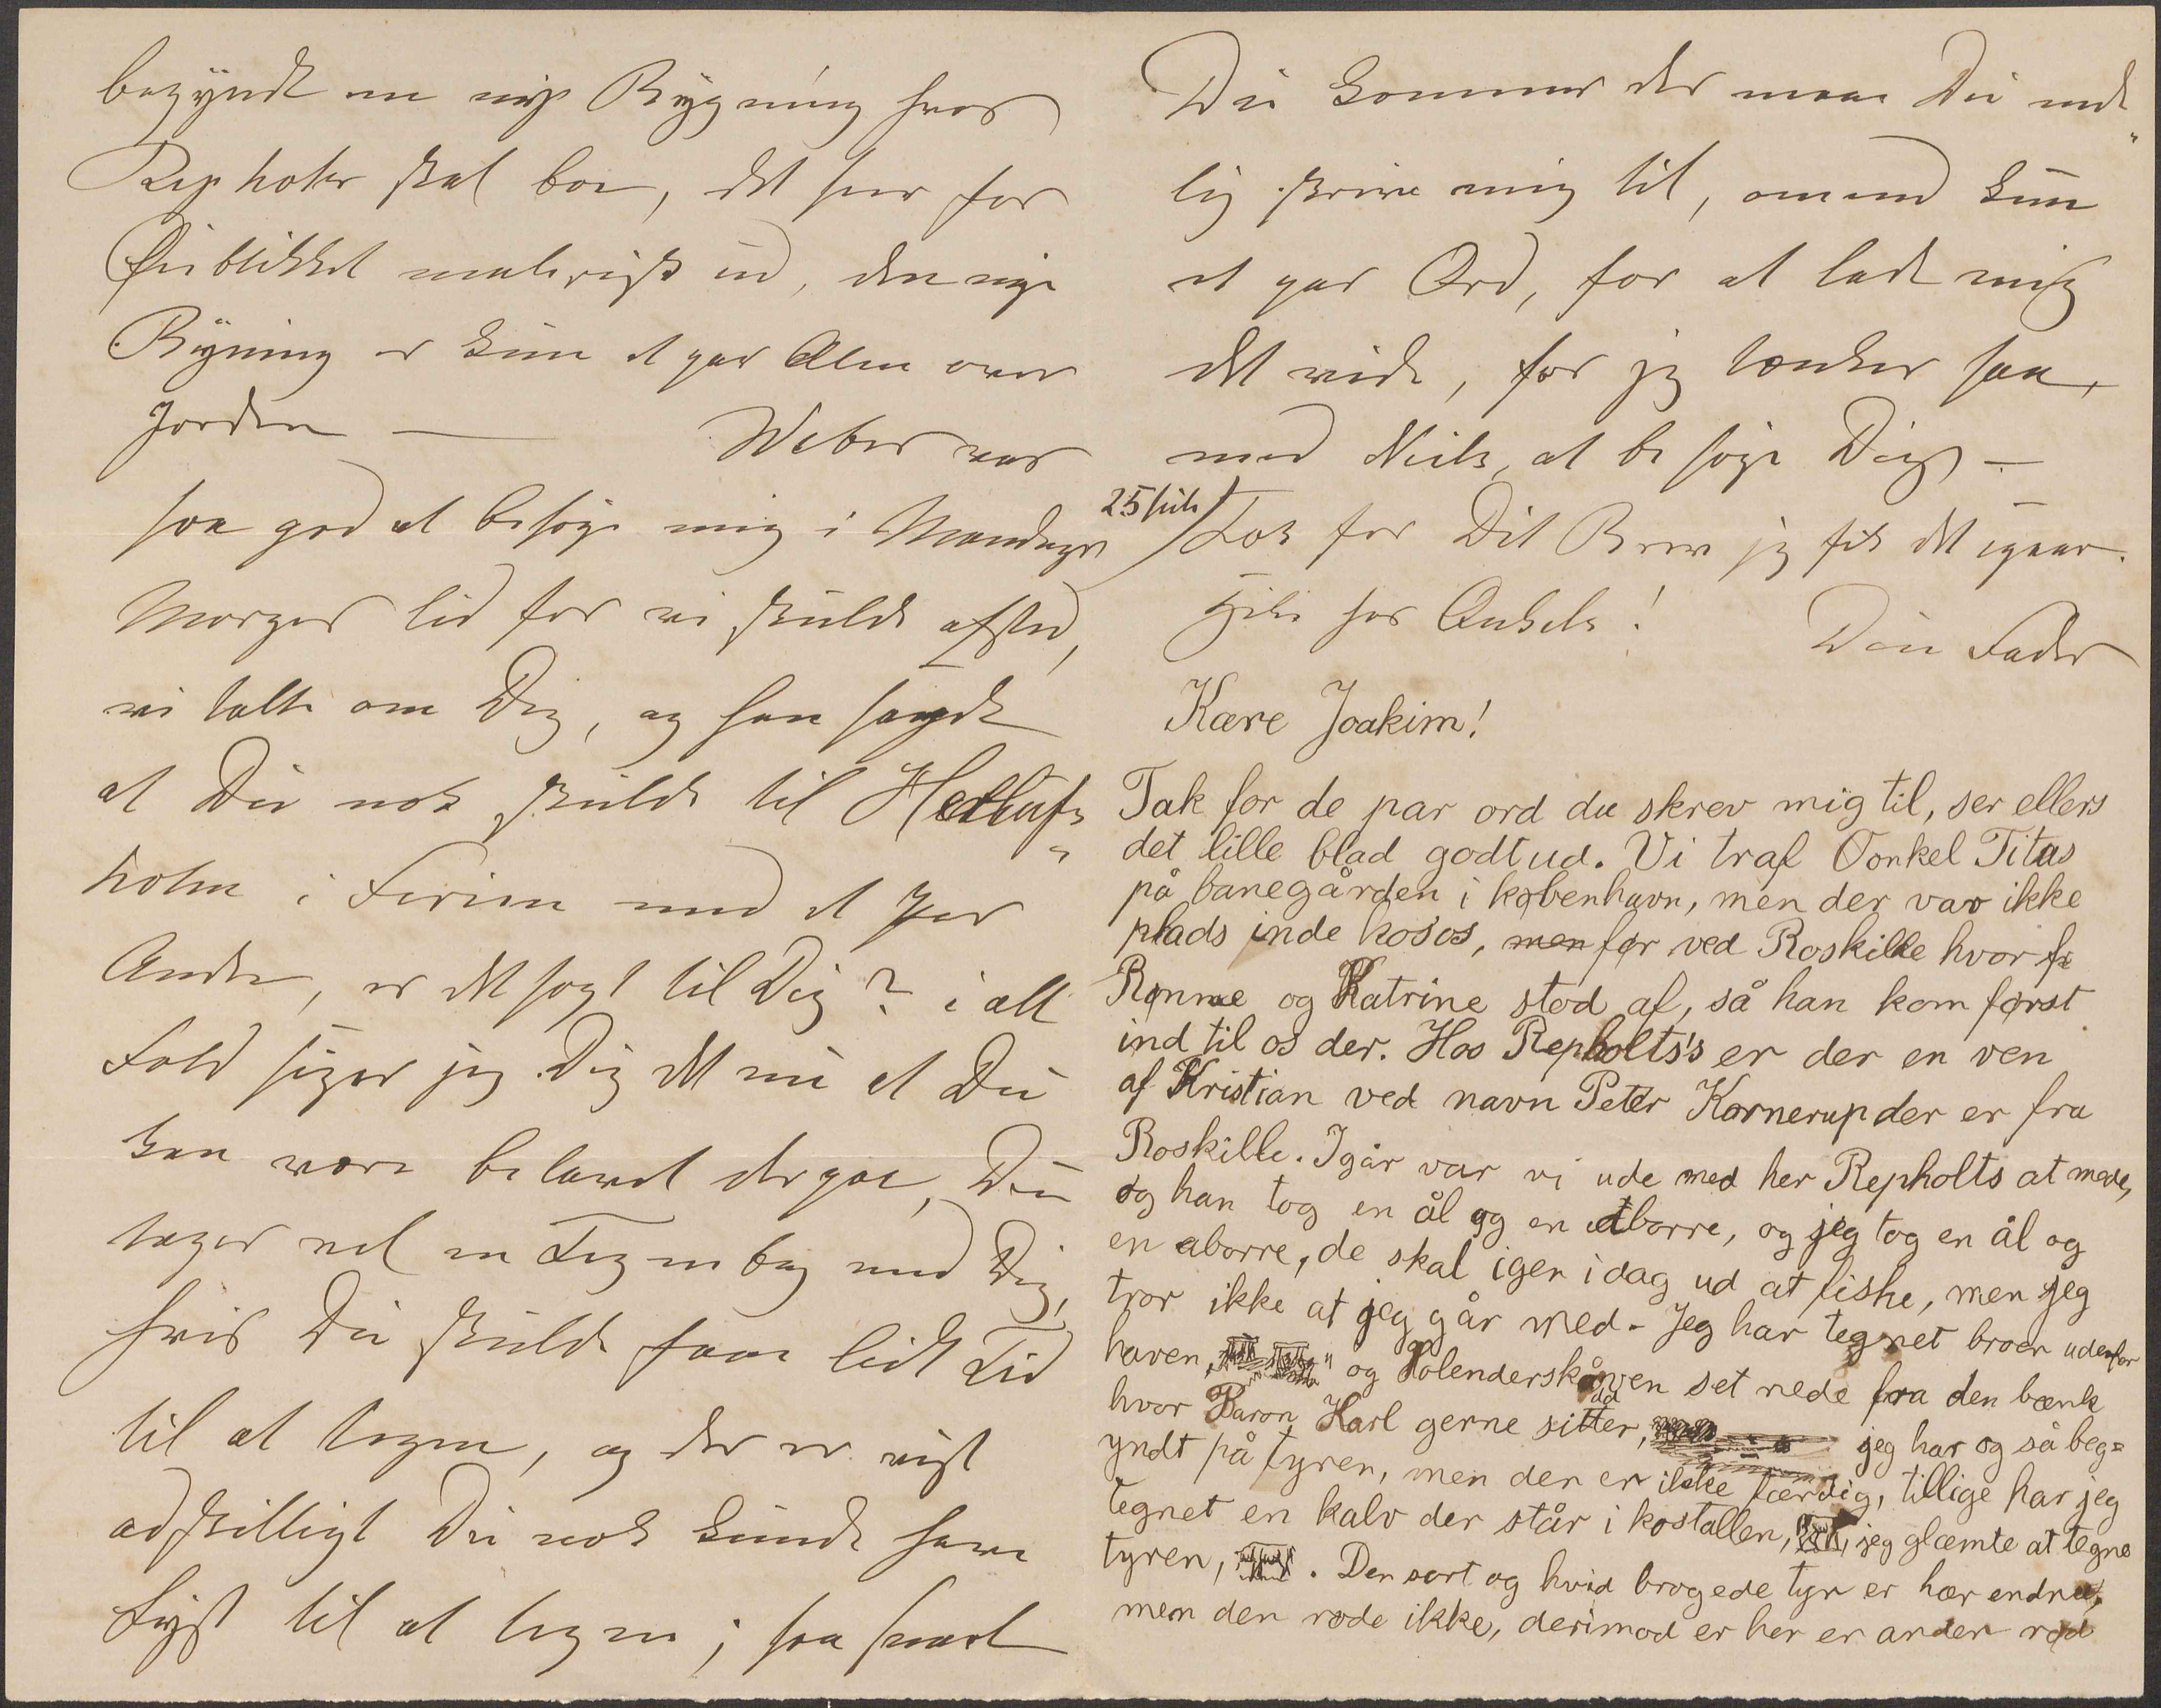 begyndt en ny Bygning hvor
Repholtz skal boe, det seer for
Øieblikket malerisk ud, den nye
Bygning er kun et par Alen over
Jorden — Weber var
saa god at besøge mig i Mandags
Morges lid før vi skulde afsted,
vi talte om Dig, og han sagde
at Du nok skulde til Herlufs-
holm i Ferien med et Par
Andre, er det sagt til Dig? i alt
Fald siger jeg Dig det nu at Du
kan være belavet derpaa, Du
tager vel en Tegnebog med Dig,
hvis Du skulde faae lidt Tid
til at tegne, og der er vist
adskilligt Du nok kunde have
Lyst til at tegne; saa snart
Du kommer der maa Du ende-
lig skrive mig til, om end kun
et par Ord, for at lade mig
det vide, for jeg tænker saa,
med Niels, at besøge Dig —
25 Juli/ Tak for Dit Brev jeg fik det igaar.
Hils hos Onkels! Din Fader
Kære Joakim!
Tak for de par ord du skrev mig til, ser ellers
det lille blad godt ud. Vi traf Oonkel Titus
på banegården i København, men der var ikke
plads inde hos os, men før ved Roskille hvor fr
Rønne og Katrine stod af, så han kom først
ind til os der. Hos Repholts's er der en ven
af Kristian ved navn Peter Kornerup der er fra
Roskille. Igår var vi ude med her Repholts at mede,
og han tog en ål og en aborre, og jeg tog en ål og
en aborre, de skal igen i dag ud at fiske, men jeg
tror ikke at jeg går med - Jeg har tegnet broen udenfor
haven, og Holenderskåven set nede fra den bænk
hvor Baron Karl gerne sitter, jeg har og så beg=
yndt på tyren, men den er ikke færdig, tillige har jeg
tegnet en kalv der står i kostallen, jeg glæmte at tegne
tyren, . Den sort og hvid brogede tyr er hær endnu,
men den røde ikke, derimod er her en anden rød